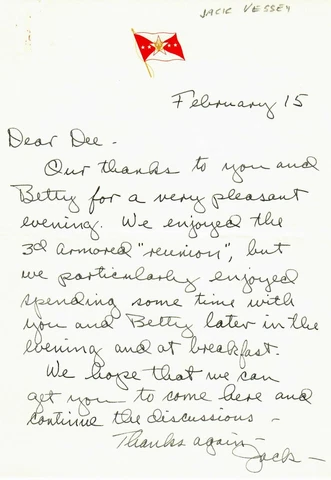 JACK VESSEY
February 15
Dear Dee -
Our thanks to you and
Betty for a very pleasant
evening. We enjoyed the
3d Armored "reunion", but
we particularly enjoyed
spending some time with
you and Betty later in the
evening and at breakfast.
We hope that we can
get you to come here and
continue the discussions -
Thanks again -
Jack -